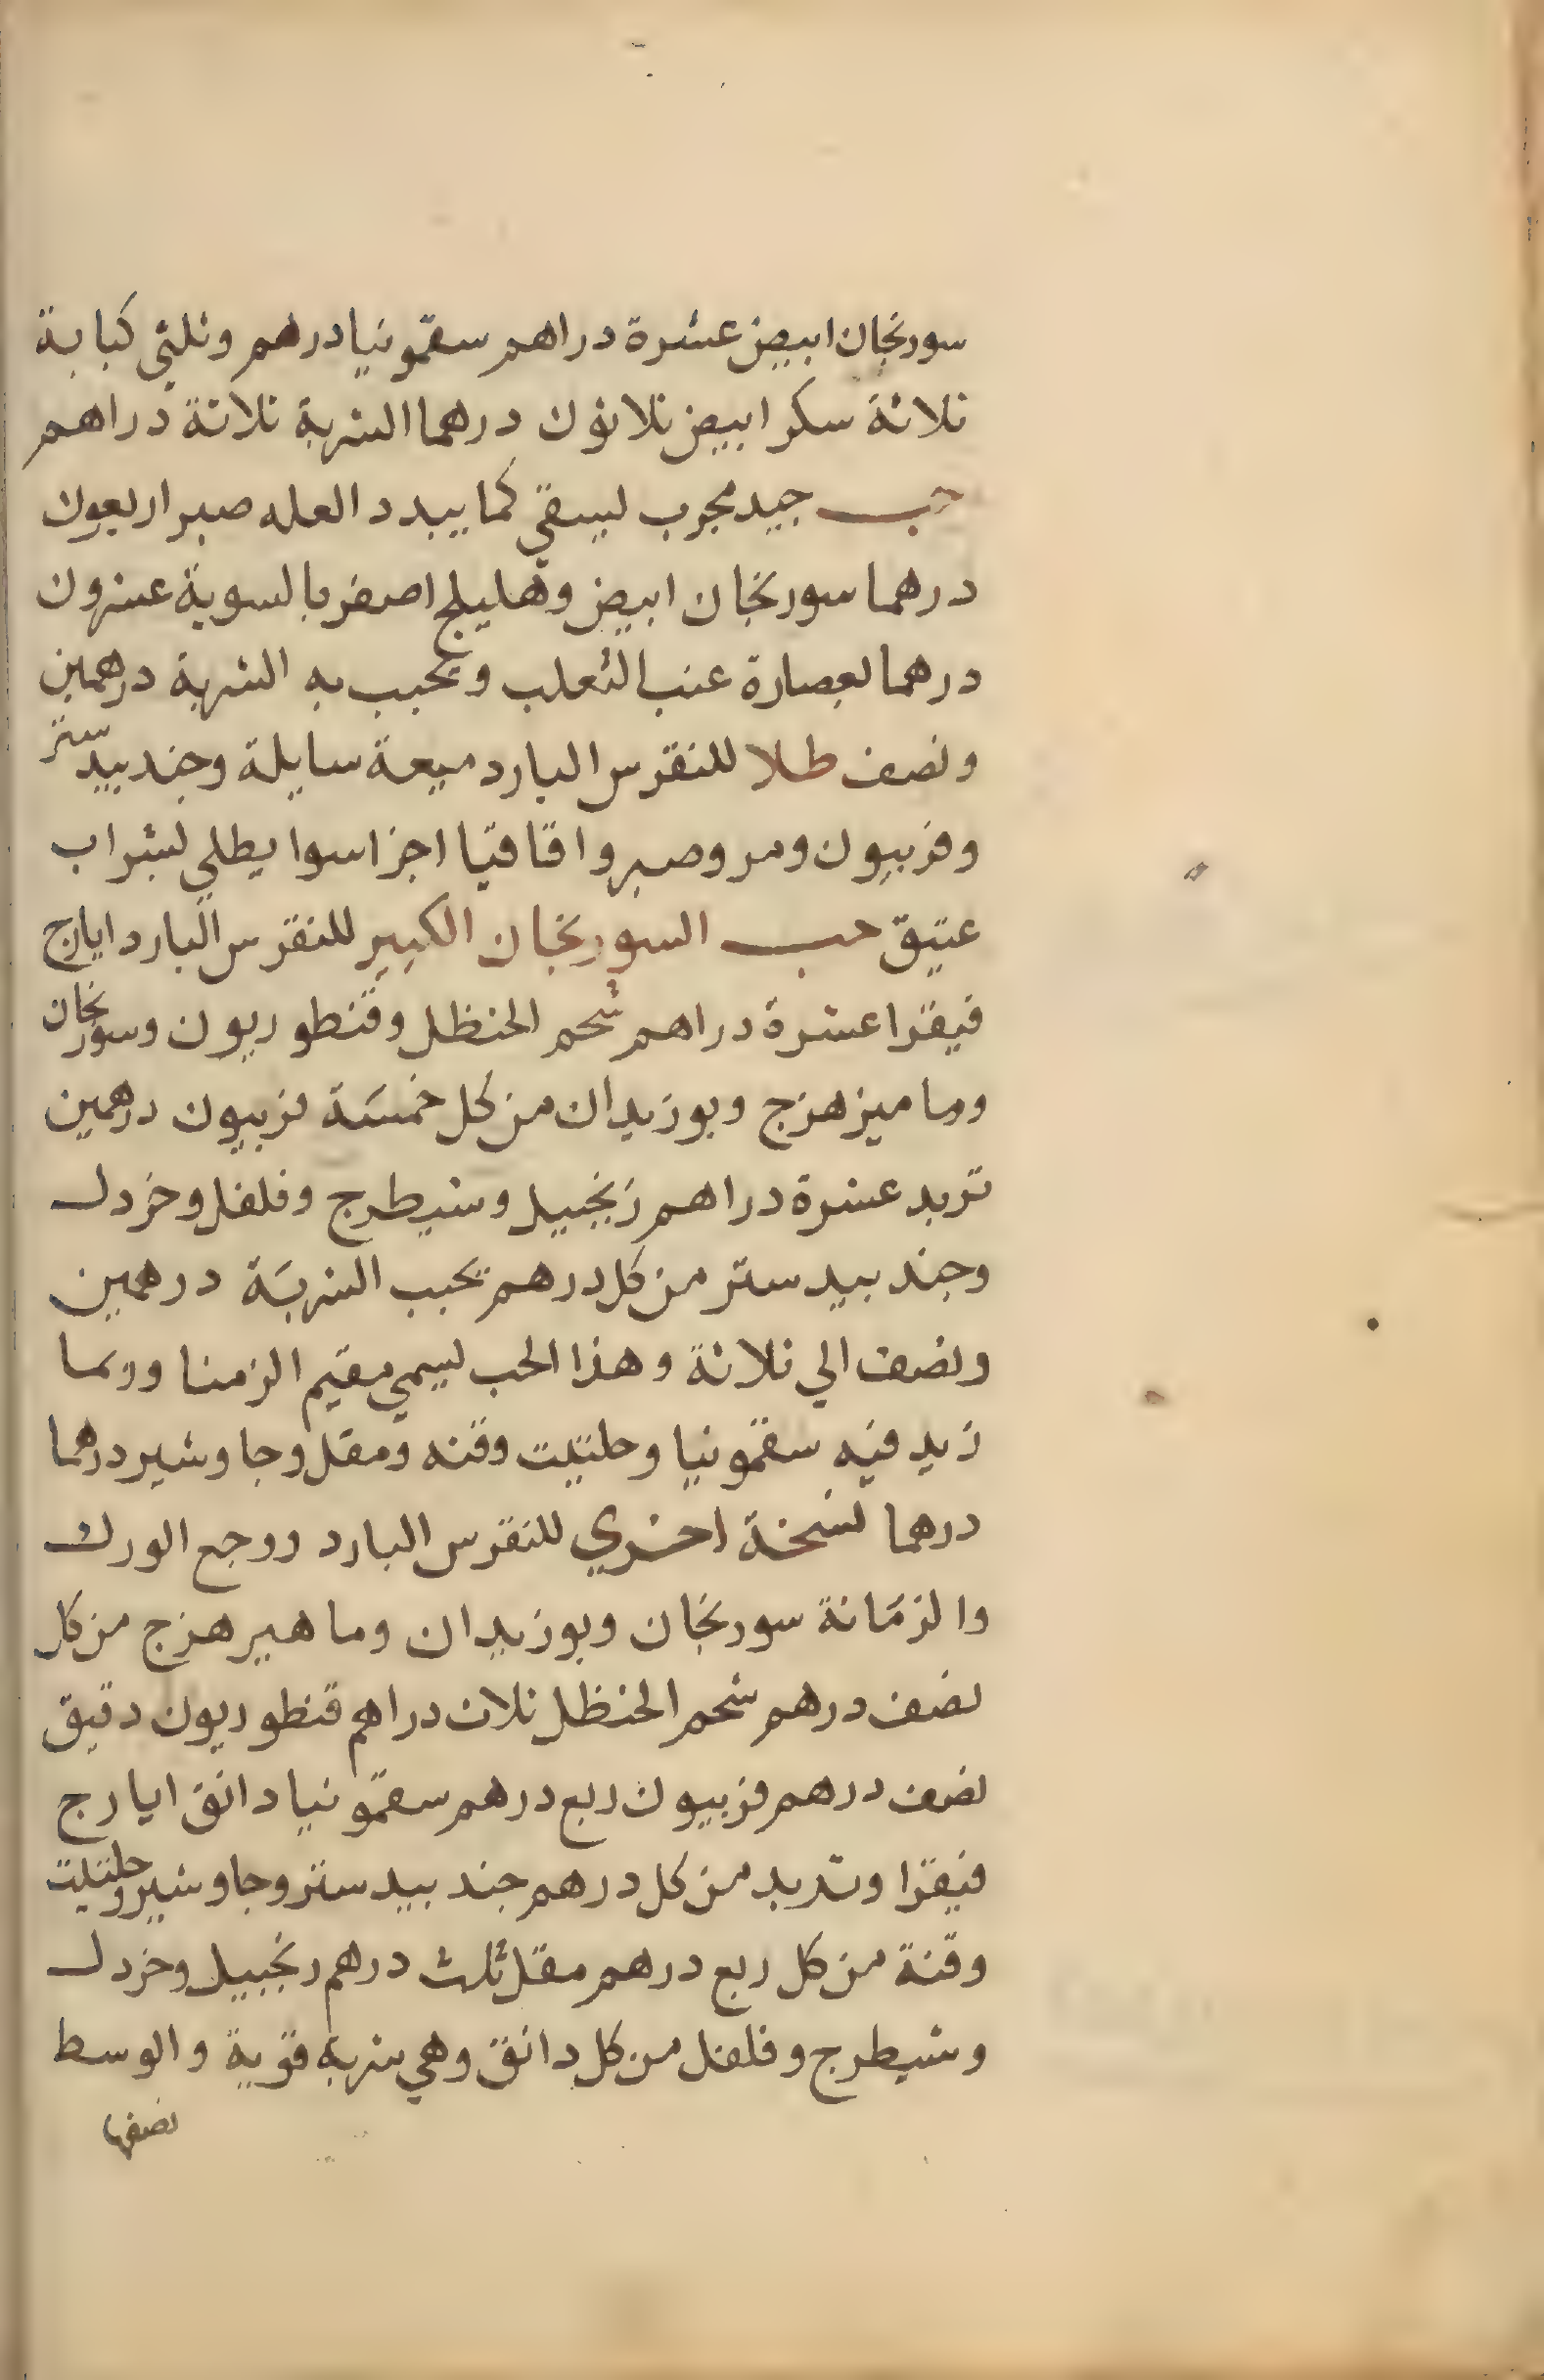 سورنجان ابيض عشرة دراهم سقمونيا درهم وثلثي كبابة
ثلاثة سكر ابيض ثلاثون درهما الشربة ثلاثة دراهم
حب جيد مجرب يسقي كما يبدد العله صبر اربعون
درهما سورنجان ابيض وهليلج اصفر بالسوية عشرون
درهما بعصارة عنب الثعلب ويحبب به الشربة درهمين
ونصف طلا للنقرس البارد ميعة سايلة وجندبيدستر
وفربيون ومر وصبر واقاقيا اجزا سوا يطلي بشراب
عتيق حب السورنجان الكبير للنقرس البارد ايارج
فيقرا عشرة دراهم شحم الحنظل وقنطوريون وسورنجان
وماميزهزج وبوزيدان من كل خمسة فربيون درهمين
تربد عشرة دراهم زنجبيل وشيطرج وفلفل وخردل
وجندبيدستر من كل درهم يحبب الشربة درهمين
ونصف الي ثلاثة وهذا الحب يسمي مقيم الزمنا وربما
زيد فيه سقمونيا وحلتيت وقنه ومقل وجاوشير درهما
درهما نسخة اخري للنقرس البارد ووجع الورك
والزمانة سورنجان وبوزيدان وماهيرهزج من كل
نصف درهم شحم الحنظل ثلاث دراهم قنطوريون دقيق
نصف درهم فربيون ربع درهم سقمونيا دانق ايارج
فيقرا وتربد من كل درهم جندبيدستر وجاوشير وحلتيت
وقنة من كل ربع درهم مقل ثلث درهم زنجبيل وخردل
وشيطرج وفلفل من كل دانق وهي شربة قوية والوسط
نصفها